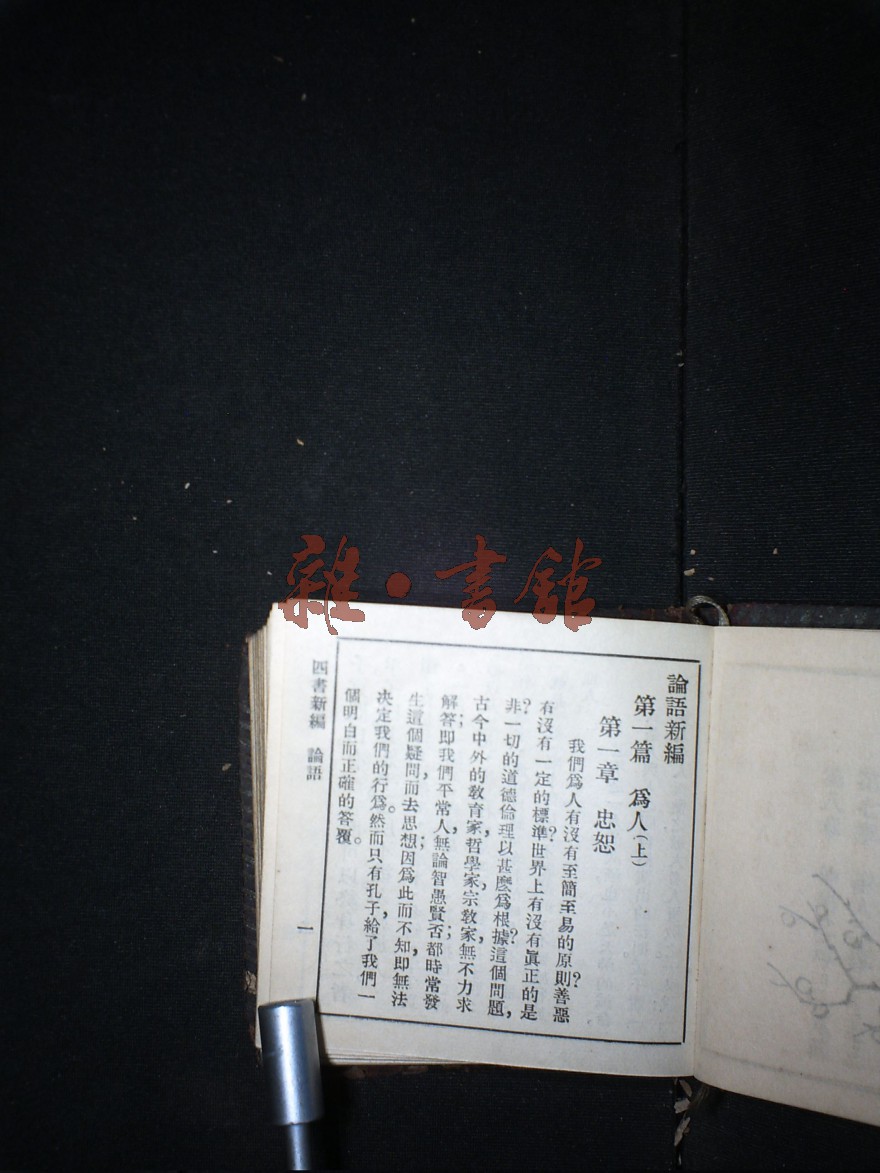 雜·書館
論語新編
第一篇 爲人(上)
第一章 忠恕
我們爲人有沒有至簡至易的原則?善惡
有沒有一定的標準?世界上有沒有眞正的是
非?一切的道德倫理以甚麼爲根據?這個問題,
古今中外的教育家,哲學家,宗教家,無不力求
解答;即我們平常人,無論智愚賢否;都時常發
生這個疑問,而去思想;因爲此而不知,即無法
決定我們的行爲。然而只有孔子,給了我們一
個明白而正確的答覆。
四書新編 論語
一